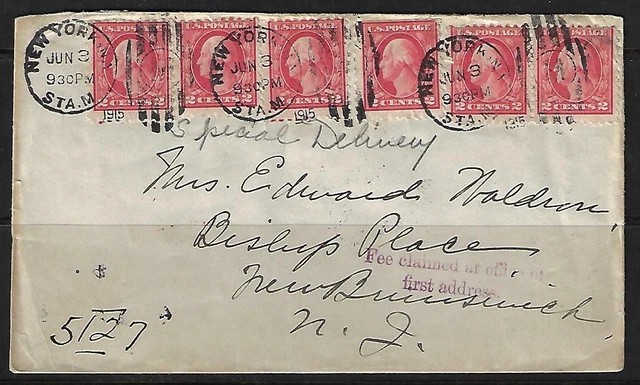 U.S. POSTAGE U.S. POSTAGE U.S. POSTAGE U.S. POSTAGE U.S. POSTAGE U.S. POSTAGE
NEW YORK, N.Y. JUN 3 930PM STA.M. 1915
NEW YORK, N.Y. JUN 3 930PM STA.M. 1915
NEW YORK, N.Y. JUN 3 930PM STA.M. 1915
2 CENTS 2 2 CENTS 2 2 CENTS 2 2 CENTS 2 2 CENTS 2 2 CENTS 2
Special Delivery
Mrs. Edward Waldron,
Bishop Place,
Fee claimed at office of
first address.
New Brunswick,
N. J.
5127